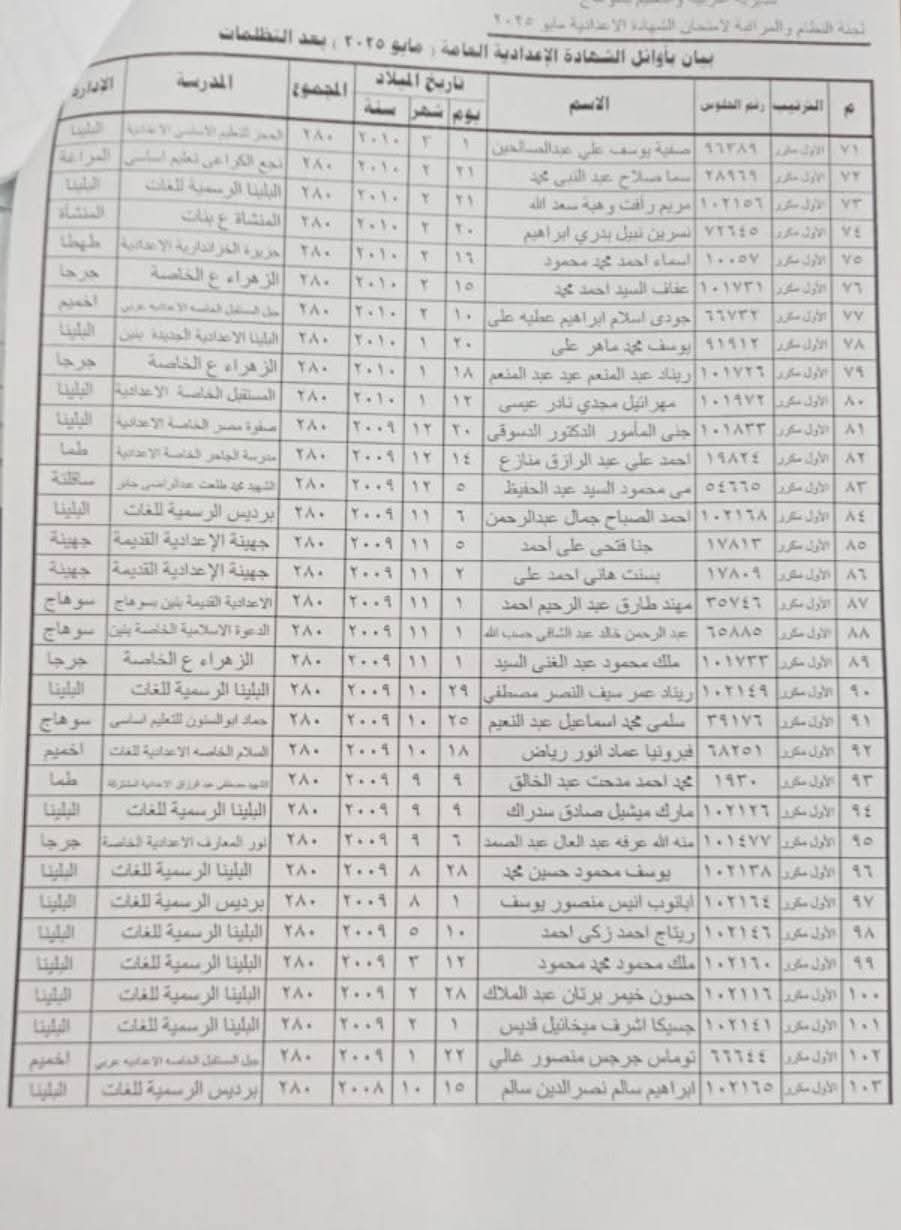 لجنة النظام والمراقبة لامتحان الشهادة الاعدادية مايو ٢٠٢٥
بيان بأوائل الشهادة الإعدادية العامة ( مايو ٢٠٢٥ ) بعد التظلمات
م الترتيب رقم الجلوس الاسم تاريخ الميلاد المجموع المدرسة الادارة
يوم شهر سنة
٧١ الأول مكرر ٩٦٣٨٩ صفية يوسف علي عبدالصالحين ١ ٣ ٢٠١٠ ٢٨٠ الحجز للتعليم الاساسى الاعدادية البلينا
٧٢ الأول مكرر ٢٨٩٦٩ سما صلاح عبد النبى محمد ٢١ ٢ ٢٠١٠ ٢٨٠ نجع الكراعى تعليم اساسى المراغة
٧٣ الأول مكرر ١٠٢١٥٦ مريم رأفت وهبة سعد الله ٢١ ٢ ٢٠١٠ ٢٨٠ البلينا الرسمية للغات البلينا
٧٤ الأول مكرر ٧٢٦٤٥ نسرين نبيل بدري ابراهيم ٢٠ ٢ ٢٠١٠ ٢٨٠ المنشاة ع بنات المنشأة
٧٥ الأول مكرر ١٠٠٥٧ اسماء احمد محمد محمود ١٦ ٢ ٢٠١٠ ٢٨٠ جزيرة الخزندارية الاعدادية طهطا
٧٦ الأول مكرر ١٠١٧٣١ عفاف السيد احمد محمد ١٥ ٢ ٢٠١٠ ٢٨٠ الزهراء ع الخاصة جرجا
٧٧ الأول مكرر ٦٦٧٣٢ جودى اسلام ابراهيم عطيه على ١٠ ٢ ٢٠١٠ ٢٨٠ جيل المستقبل الخاصه الاعداديه عربي اخميم
٧٨ الأول مكرر ٩١٩١٢ يوسف محمد ماهر على ٢٠ ١ ٢٠١٠ ٢٨٠ البلينا الاعدادية الجديدة بنين البلينا
٧٩ الأول مكرر ١٠١٧٢٦ ريناد عبد المنعم عيد عبد المنعم ١٨ ١ ٢٠١٠ ٢٨٠ الزهراء ع الخاصة جرجا
٨٠ الأول مكرر ١٠١٩٧٢ مهرائيل مجدي نادر عيسى ١٢ ١ ٢٠١٠ ٢٨٠ المستقبل الخاصة الاعدادية البلينا
٨١ الأول مكرر ١٠١٨٣٣ جنى المأمور الدكتور الدسوقى ٢٠ ١٢ ٢٠٠٩ ٢٨٠ صفوة مصر الخاصة الاعدادية البلينا
٨٢ الأول مكرر ١٩٨٢٤ احمد علي عبد الرازق منازع ١٤ ١٢ ٢٠٠٩ ٢٨٠ مدرسة الجاحر الخاصة الاعدادية طما
٨٣ الأول مكرر ٥٤٦٦٥ مى محمود السيد عبد الحفيظ ٥ ١٢ ٢٠٠٩ ٢٨٠ الشهيد محمد طلعت عبدالراضى جابر ساقلتة
٨٤ الأول مكرر ١٠٢١٦٨ احمد الصباح جمال عبدالرحمن ٦ ١١ ٢٠٠٩ ٢٨٠ برديس الرسمية للغات البلينا
٨٥ الأول مكرر ١٧٨١٣ جنا فتحى على أحمد ٥ ١١ ٢٠٠٩ ٢٨٠ جهينة الإعدادية القديمة جهينة
٨٦ الأول مكرر ١٧٨٠٩ بسنت هانى احمد على ٢ ١١ ٢٠٠٩ ٢٨٠ جهينة الإعدادية القديمة جهينة
٨٧ الأول مكرر ٣٥٧٤٦ مهند طارق عبد الرحيم احمد ١ ١١ ٢٠٠٩ ٢٨٠ الاعدادية القديمة بنين بسوهاج سوهاج
٨٨ الأول مكرر ٦٥٨٨٥ عبد الرحمن خالد عبد الشافى حسب الله ١ ١١ ٢٠٠٩ ٢٨٠ الدعوة الاسلامية الخاصة بنين سوهاج
٨٩ الأول مكرر ١٠١٧٣٣ ملك محمود عبد الغنى السيد ١ ١١ ٢٠٠٩ ٢٨٠ الزهراء ع الخاصة جرجا
٩٠ الأول مكرر ١٠٢١٤٩ ريناد عمر سيف النصر مصطفي ٢٩ ١٠ ٢٠٠٩ ٢٨٠ البلينا الرسمية للغات البلينا
٩١ الأول مكرر ٣٩١٧٦ سلمى محمد اسماعيل عبد النعيم ٢٥ ١٠ ٢٠٠٩ ٢٨٠ حماد ابوالسنون للتعليم اساسى سوهاج
٩٢ الأول مكرر ٦٨٢٥١ فيرونيا عماد انور رياض ١٨ ١٠ ٢٠٠٩ ٢٨٠ السلام الخاصه الاعدادية للغات اخميم
٩٣ الأول مكرر ١٩٣٠ محمد احمد مدحت عبد الخالق ٩ ٩ ٢٠٠٩ ٢٨٠ الشهيد مصطفى عبد الرزاق الاعدادية المشتركة طما
٩٤ الأول مكرر ١٠٢١٢٦ مارك ميشيل صادق سدراك ٩ ٩ ٢٠٠٩ ٢٨٠ البلينا الرسمية للغات البلينا
٩٥ الأول مكرر ١٠١٤٧٧ منه الله عرفه عبد العال عبد الصمد ٦ ٩ ٢٠٠٩ ٢٨٠ نور المعارف الاعدادية الخاصة جرجا
٩٦ الأول مكرر ١٠٢١٣٨ يوسف محمود حسين محمد ٢٨ ٨ ٢٠٠٩ ٢٨٠ البلينا الرسمية للغات البلينا
٩٧ الأول مكرر ١٠٢١٦٤ ابانوب انيس منصور يوسف ١ ٨ ٢٠٠٩ ٢٨٠ برديس الرسمية للغات البلينا
٩٨ الأول مكرر ١٠٢١٤٦ ريتاج احمد زكى احمد ١٠ ٥ ٢٠٠٩ ٢٨٠ البلينا الرسمية للغات البلينا
٩٩ الأول مكرر ١٠٢١٦٠ ملك محمود محمد محمود ١٢ ٣ ٢٠٠٩ ٢٨٠ البلينا الرسمية للغات البلينا
١٠٠ الأول مكرر ١٠٢١١٦ حسون خيمر برتان عبد الملاك ٢٨ ٢ ٢٠٠٩ ٢٨٠ البلينا الرسمية للغات البلينا
١٠١ الأول مكرر ١٠٢١٤١ جسيكا اشرف ميخائيل قديس ١ ٢ ٢٠٠٩ ٢٨٠ البلينا الرسمية للغات البلينا
١٠٢ الأول مكرر ٦٦٦٤٤ توماس جرجس منصور غالي ٢٢ ١ ٢٠٠٩ ٢٨٠ جيل المستقبل الخاصه الاعداديه عربي اخميم
١٠٣ الأول مكرر ١٠٢١٦٥ ابراهيم سالم نصر الدين سالم ١٥ ١٠ ٢٠٠٨ ٢٨٠ برديس الرسمية للغات البلينا